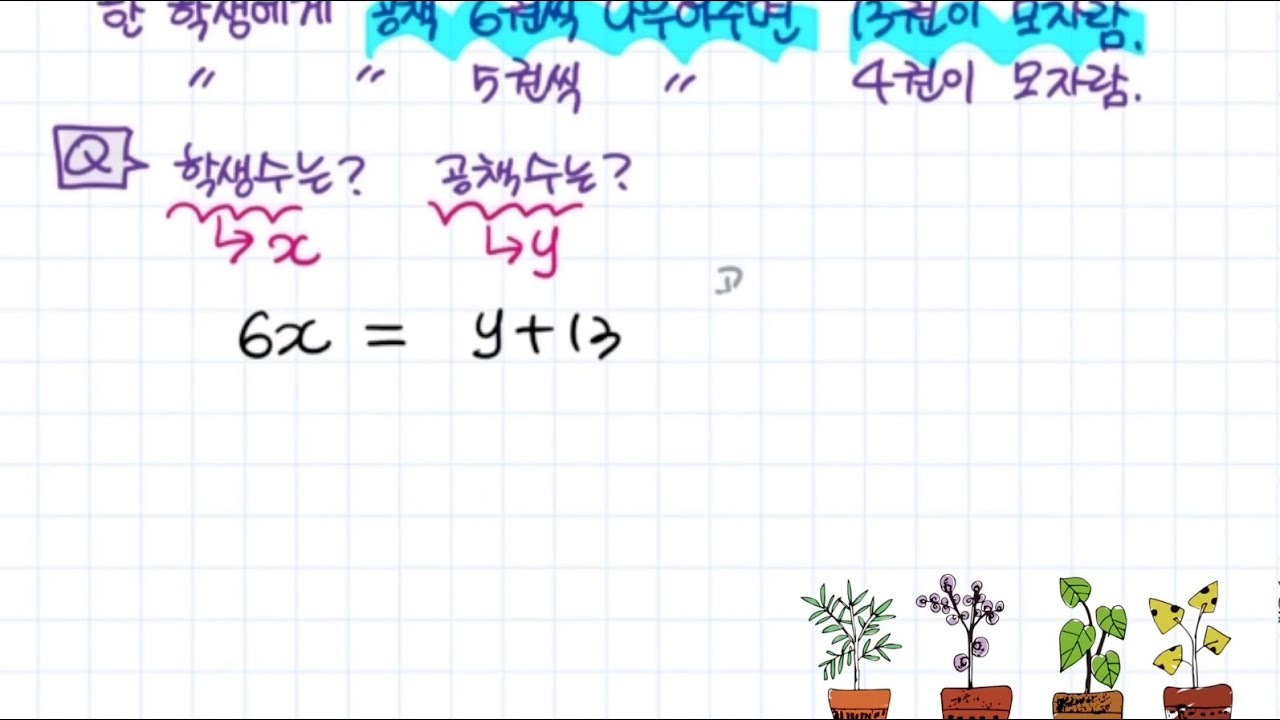 한 학생에게 공책 6권씩 나누어주면 13권이 모자람.
〃 〃 5권씩 〃 4권이 모자람.
Q 학생수는? 공책수는?
↳ x ↳ y
6x = y+13